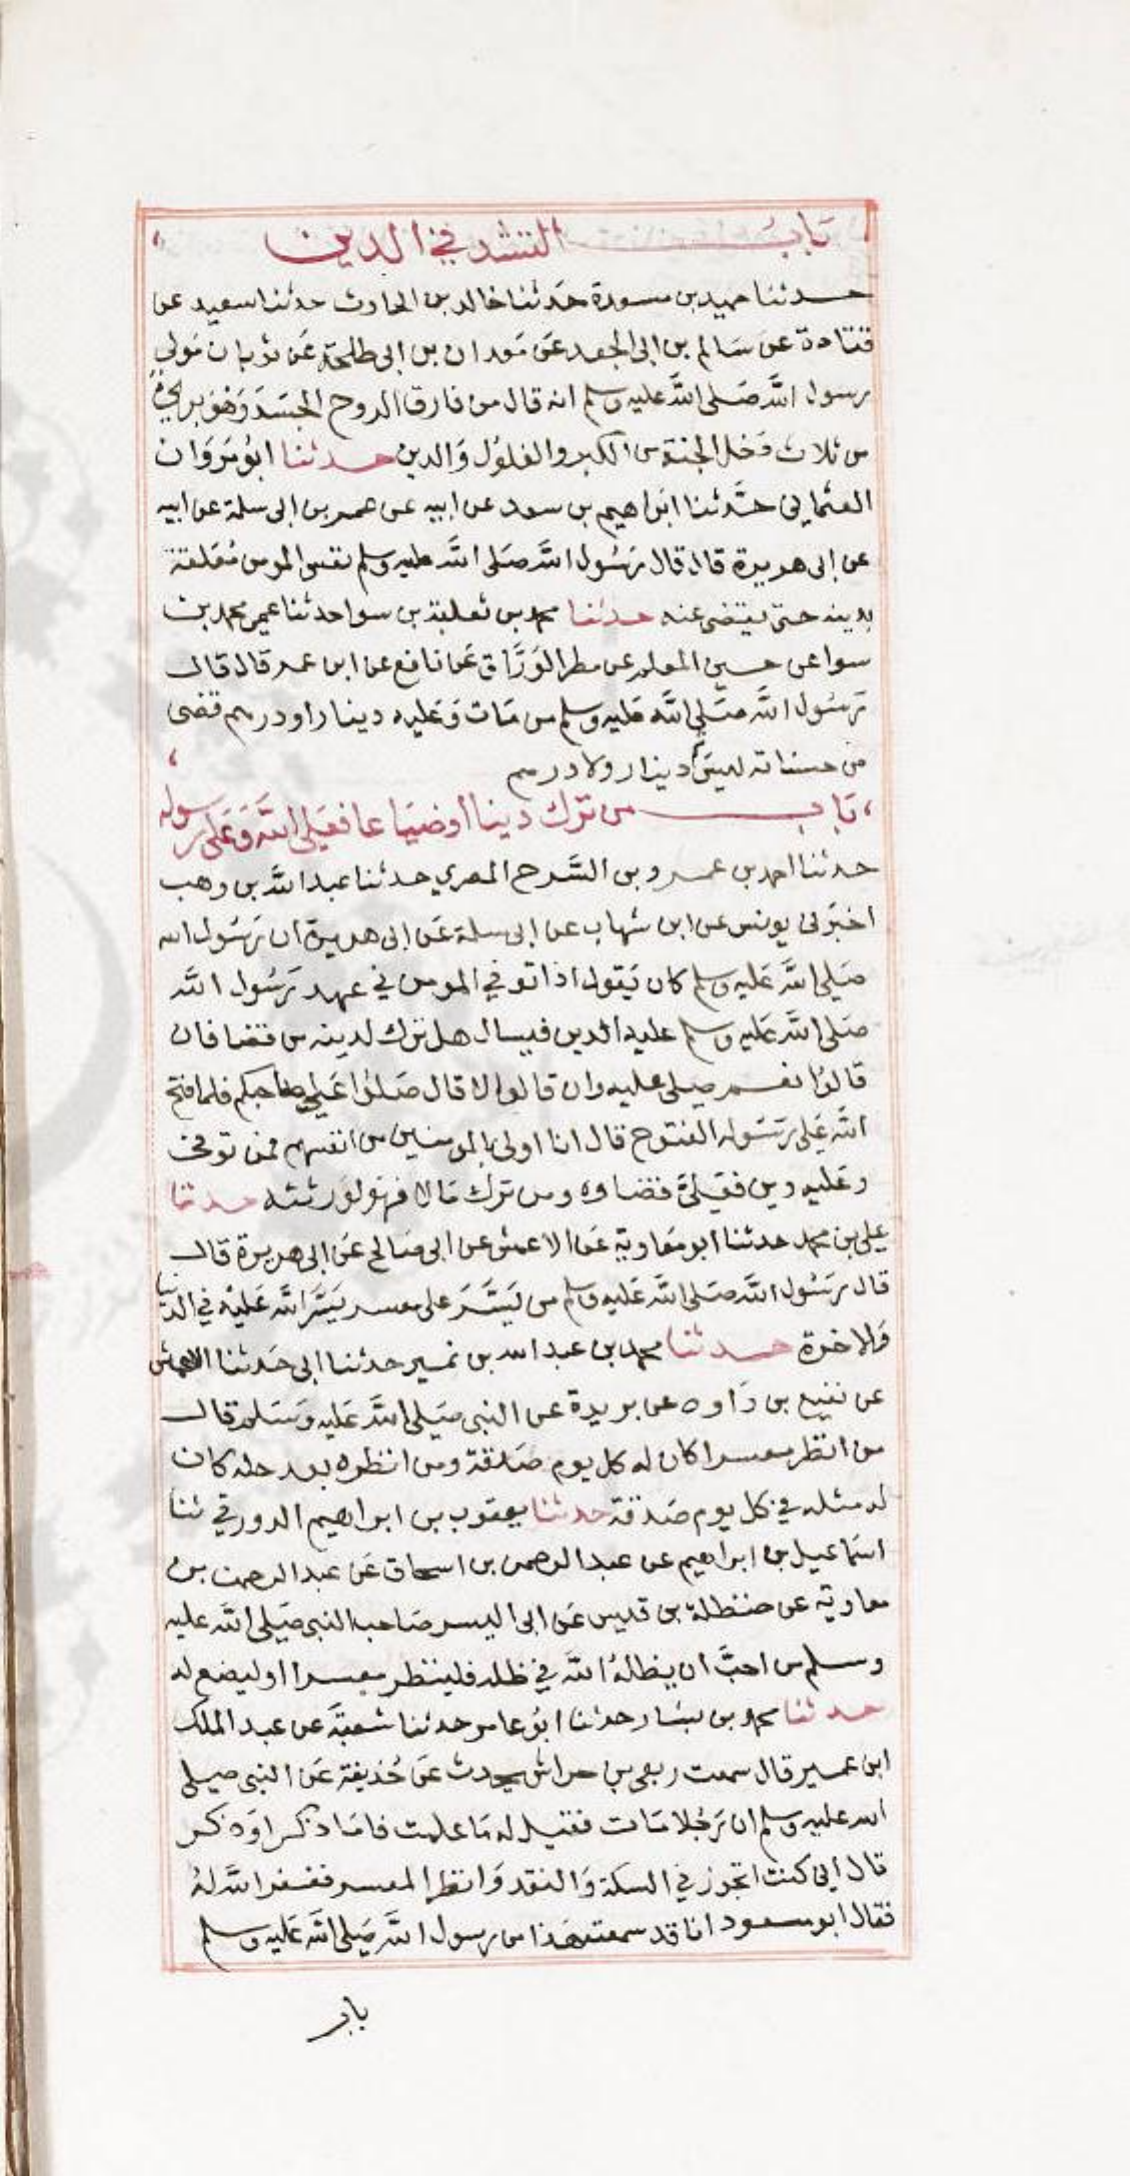 باب التشديد في الدين
حدثنا حميد بن مسعدة حدثنا خالد بن الحارث حدثنا سعيد عن
قتادة عن سالم بن ابي الجعد عن معدان بن ابي طلحة عن ثوبان مولي
رسول الله صلى الله عليه وسلم انه قال من فارق الروح الجسد وهو بريئ
من ثلاث دخل الجنة من الكبر والغلول والدين حدثنا ابو مروان
العثماني حدثنا ابراهيم بن سعد عن ابيه عن عمر بن ابي سلمة عن ابيه
عن ابي هريرة قال قال رسول الله صلى الله عليه وسلم نفس المومن معلقة
بدينه حتى يقضى عنه حدثنا محمد بن ثعلبة بن سوا حدثنا عمي محمد بن
سوا عن حسين المعلم عن مطر الوراق عن نافع عن ابن عمر قال قال
رسول الله صلى الله عليه وسلم من مات وعليه دينار او درهم قضى
من حسناته ليس ثم دينار ولا درهم
باب من ترك دينا او ضياعا فعلى الله وعلى رسوله
حدثنا احمد بن عمرو بن السرح المصري حدثنا عبد الله بن وهب
اخبرني يونس عن ابن شهاب عن ابي سلمة عن ابي هريرة ان رسول الله
صلى الله عليه وسلم كان يقول اذا توفي المومن في عهد رسول الله
صلى الله عليه وسلم عليه الدين فيسال هل ترك لدينه من قضا فان
قالوا نعم صلى عليه وان قالوا لا قال صلوا على صاحبكم فلما فتح
الله على رسوله الفتوح قال انا اولى بالمومنين من انفسهم فمن توفى
وعليه دين فعلي قضاوه ومن ترك مالا فهو لورثته حدثنا
علي بن محمد حدثنا ابو معاوية عن الاعمش عن ابي صالح عن ابي هريرة قال
قال رسول الله صلى الله عليه وسلم من يسر على معسر يسر الله عليه في الدنيا
والاخرة حدثنا محمد بن عبد الله بن نمير حدثنا ابي حدثنا الاعمش
عن نفيع بن داود عن بريدة عن النبي صلى الله عليه وسلم قال
من انظر معسرا كان له كل يوم صدقة ومن انظره بعد حله كان
له مثله في كل يوم صدقة حدثنا يعقوب بن ابراهيم الدورقي ثنا
اسماعيل بن ابراهيم عن عبد الرحمن بن اسحاق عن عبد الرحمن بن
معاوية عن حنظلة بن قيس عن ابي اليسر صاحب النبي صلى الله عليه
وسلم من احب ان يظله الله في ظله فلينظر معسرا او ليضع له
حدثنا محمد بن بشار حدثنا ابو عامر حدثنا شعبة عن عبد الملك
ابن عمير قال سمعت ربعي بن حراش يحدث عن حذيفة عن النبي صلى
الله عليه وسلم ان رجلا مات فقيل له ما عملت فاما ذكر او ذكر
قال اني كنت اتجوز في السكة والنقد وانظر المعسر فغفر الله له
فقال ابو مسعود انا قد سمعت هذا من رسول الله صلى الله عليه وسلم
باب